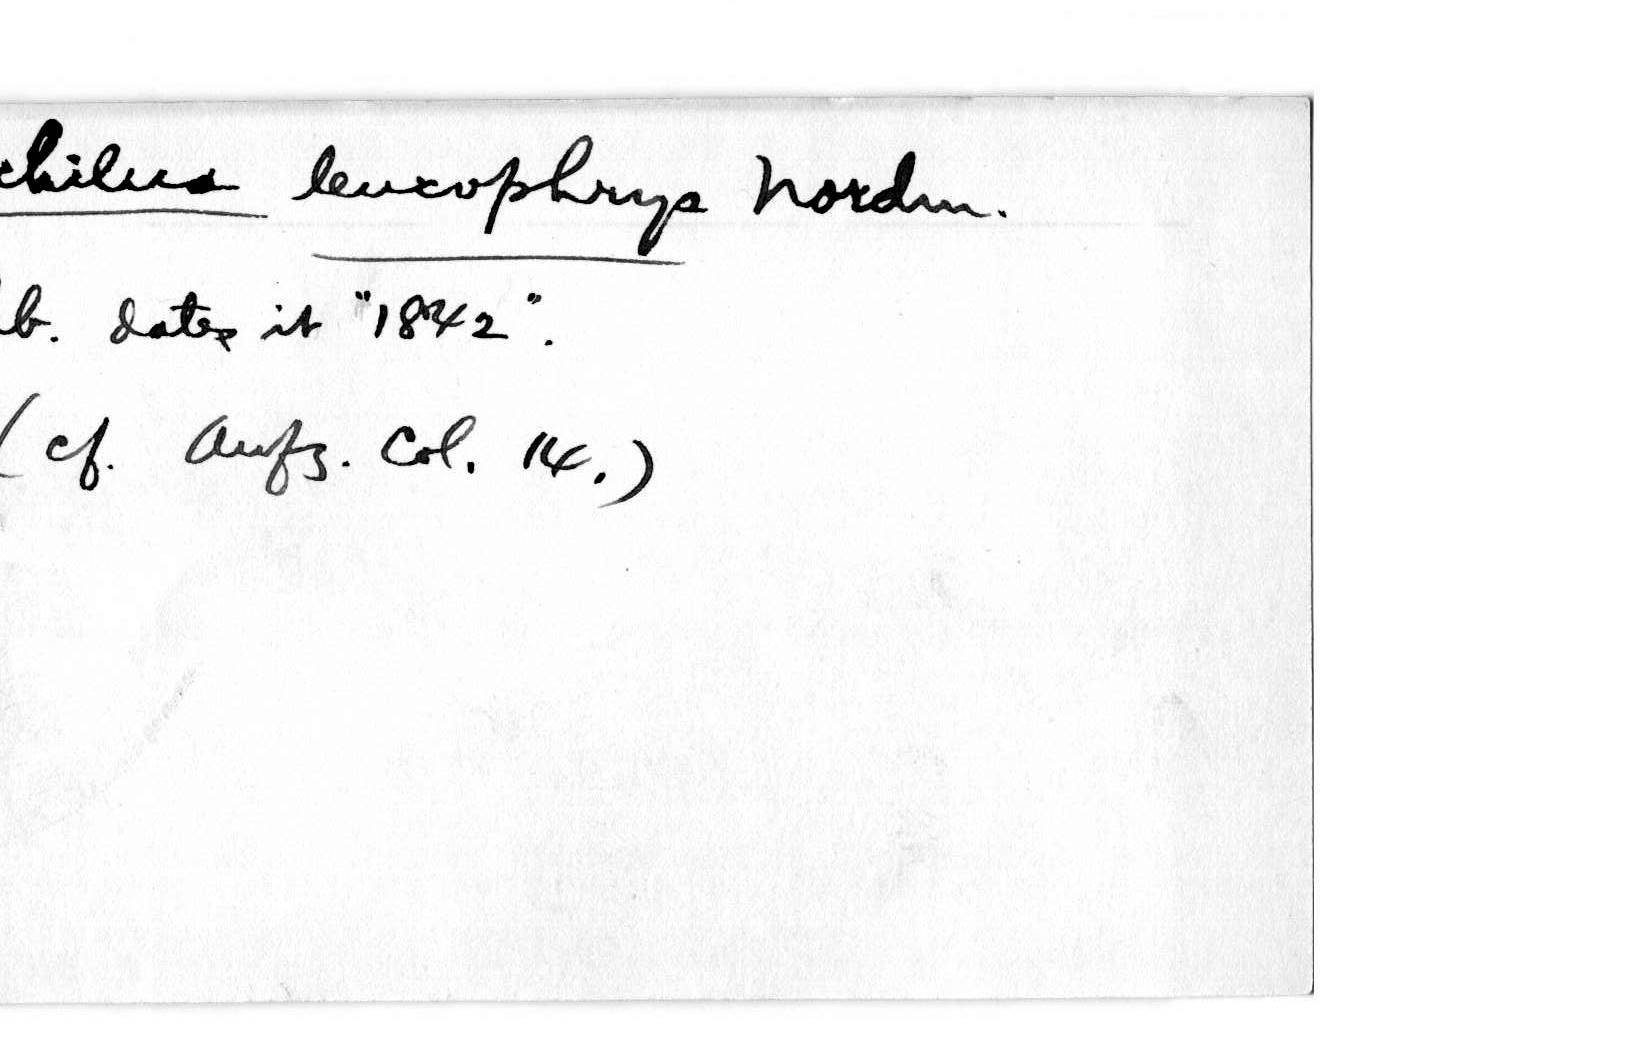 chilus leucophrys Nordm.
b. dates it "1842".
(cf. Aufz. Col. 14.)